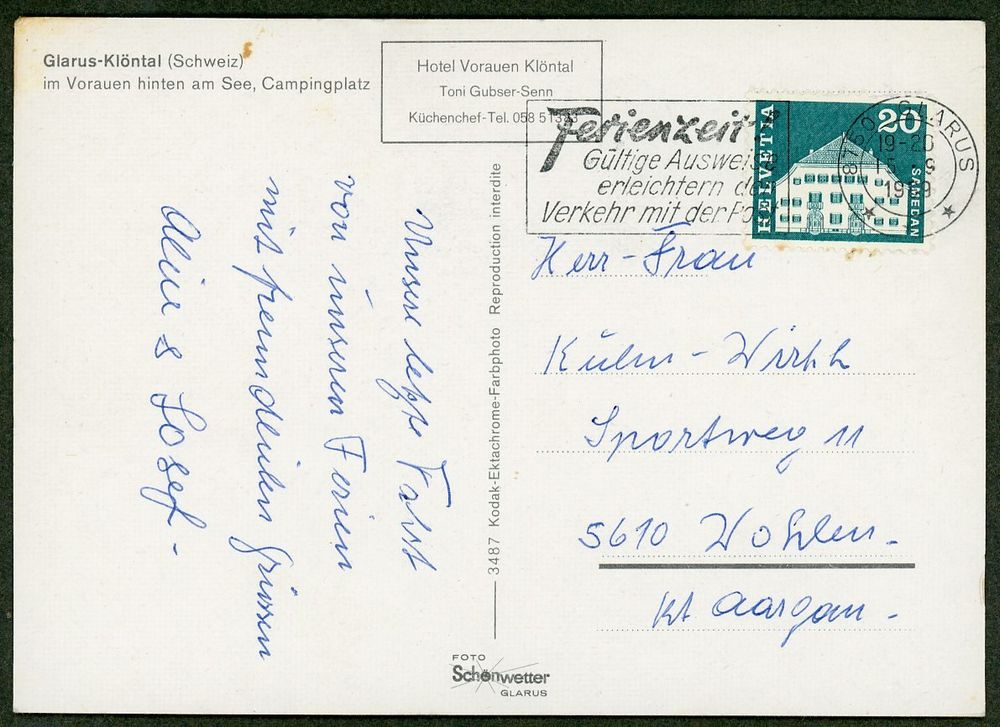 Glarus-Klöntal (Schweiz)
im Vorauen hinten am See, Campingplatz
Hotel Vorauen Klöntal
Toni Gubser-Senn
Küchenchef-Tel. 058 51383
Ferienzeit
Gültige Ausweise
erleichtern den
Verkehr mit der Post
HELVETIA
20
SAMEDAN
8750 GLARUS
19-20
1969
Unsere letzte Fahrt
von unseren Ferien
mit freundlichen Grüssen
& Josef -
Herr - Frau
Kuhn - Wirth
Sportweg 11
5610 Wohlen -
Kt Aargau -
3487 Kodak-Ektachrome-Farbphoto Reproduction interdite
FOTO
Schönwetter
GLARUS